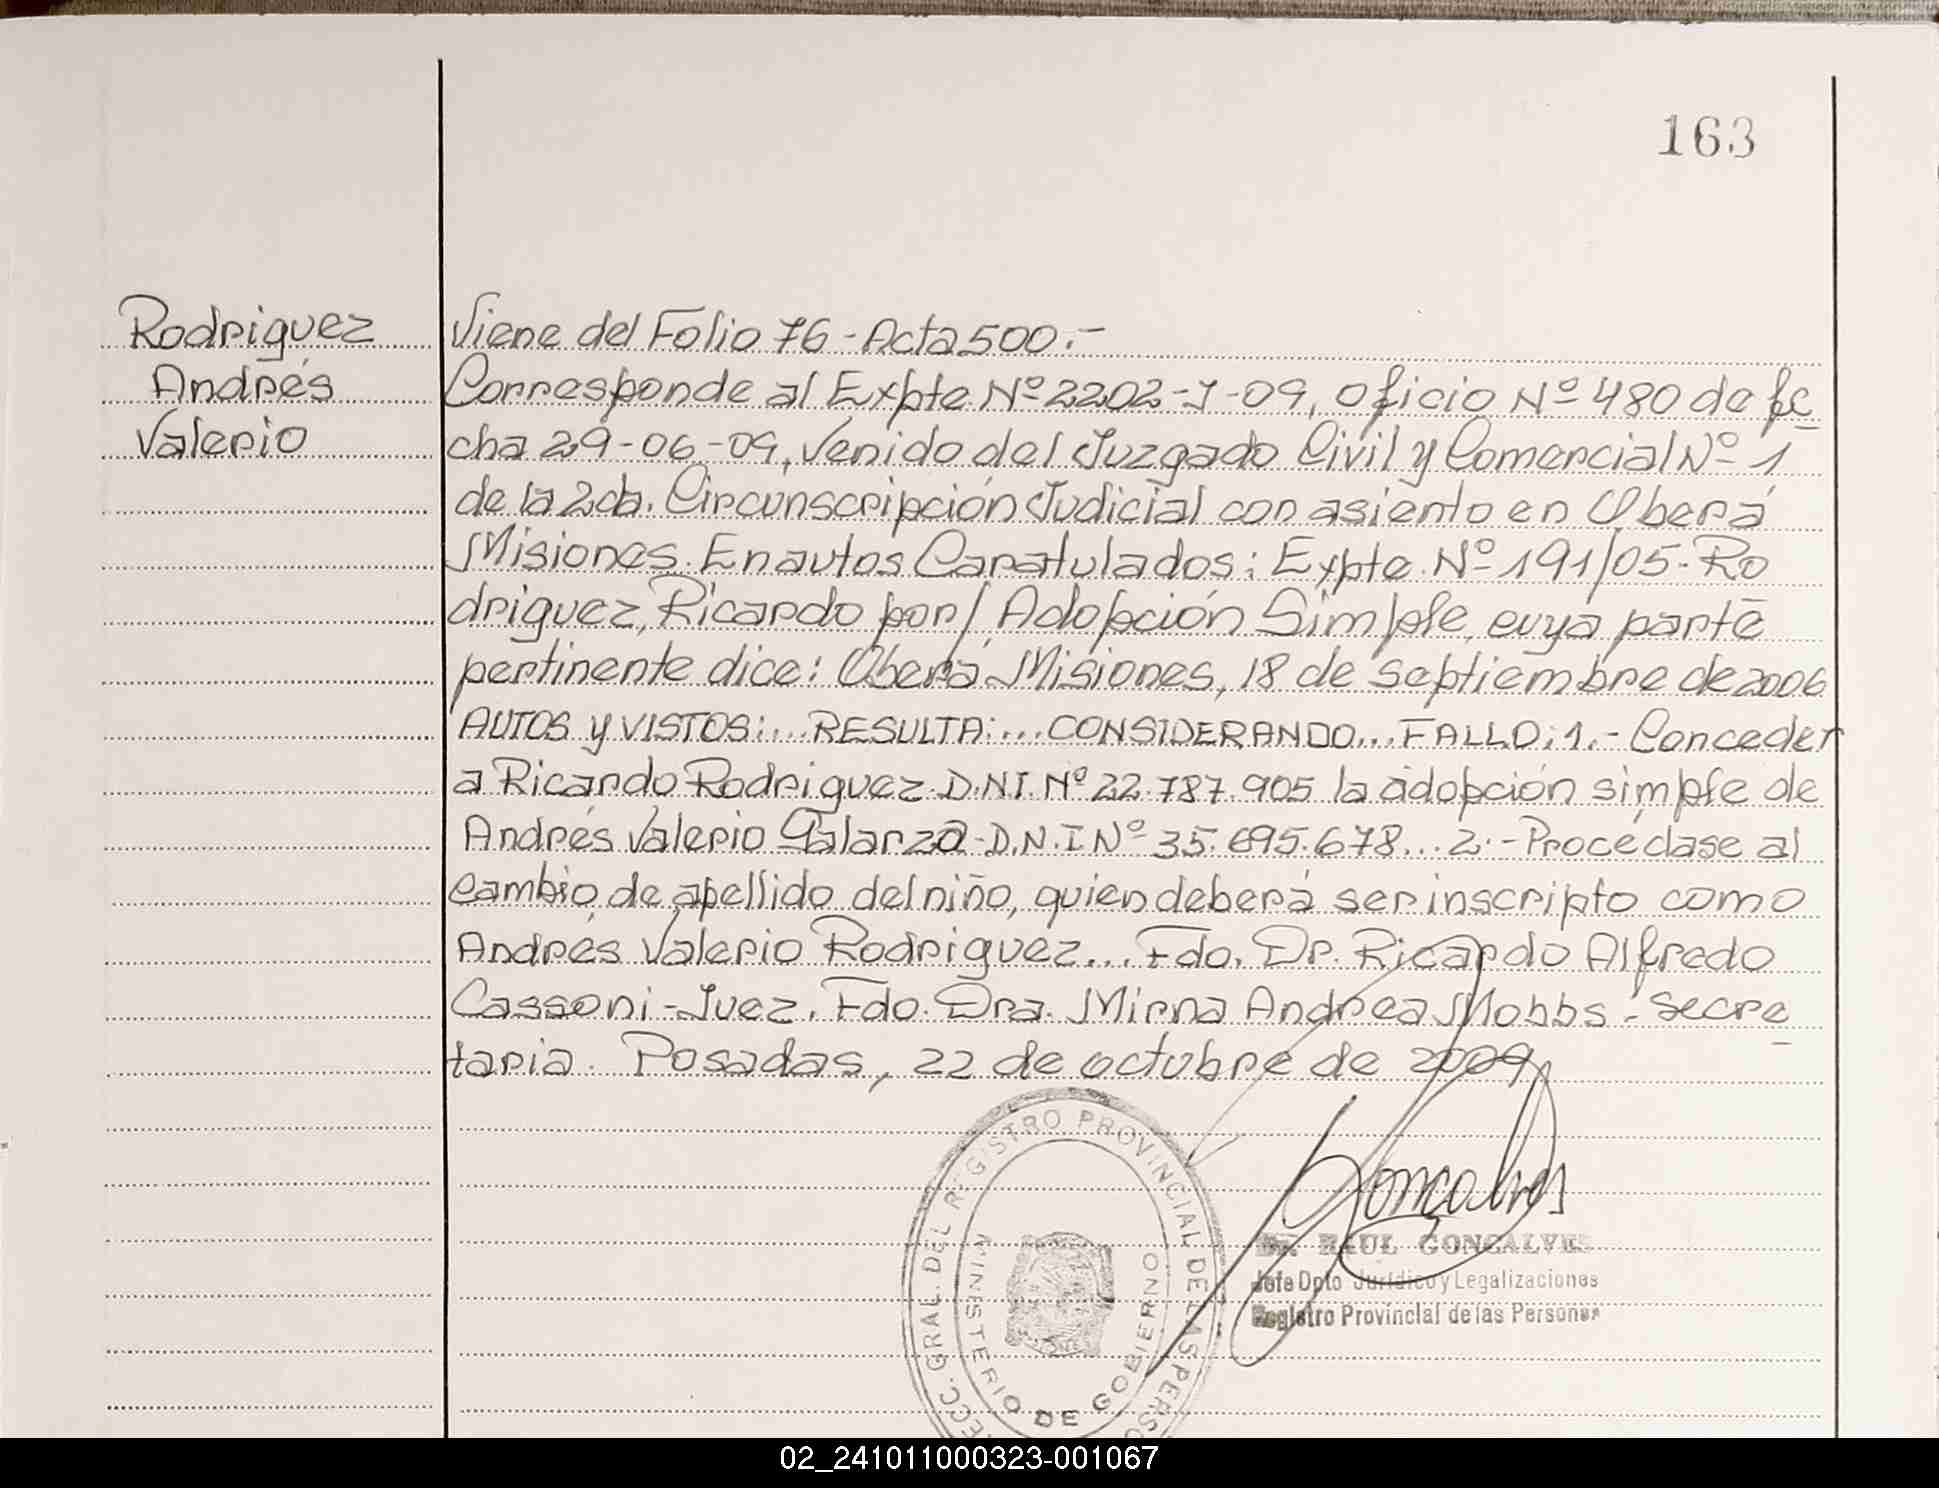 163
Rodriguez
Andrés
Valerio
Viene del Folio 76 - Acta 500.-
Corresponde al Expte Nº 2202-J-09, oficio Nº 480 de fe
cha 29-06-09, venido del Juzgado Civil y Comercial Nº 1
de la 2da. Circunscripción Judicial con asiento en Oberá
Misiones. En autos Caratulados: Expte. Nº 191/05-Ro
driguez, Ricardo por/ Adopción Simple, cuya parte
pertinente dice: Oberá Misiones, 18 de septiembre de 2006
AUTOS y VISTOS:... RESULTA:... CONSIDERANDO... FALLO: 1.- Conceder
a Ricardo Rodriguez D.N.I. Nº 22.787.905 la adopción simple de
Andrés Valerio Galarza - D.N.I Nº 35.695.678... 2.- Procédase al
cambio de apellido del niño, quien deberá ser inscripto como
Andrés Valerio Rodriguez... Fdo. Dr. Ricardo Alfredo
Cassoni - Juez. Fdo. Dra. Mirna Andrea Mobbs - Secre
taria. Posadas, 22 de octubre de 2009
ECC. GRAL. DEL REGISTRO PROVINCIAL DE LAS PERSO
MINISTERIO DE GOBIERNO
Goncalves
Dr. RAUL GONCALVES
Jefe Dpto Jurídico y Legalizaciones
Registro Provincial de las Personas
02_241011000323-001067